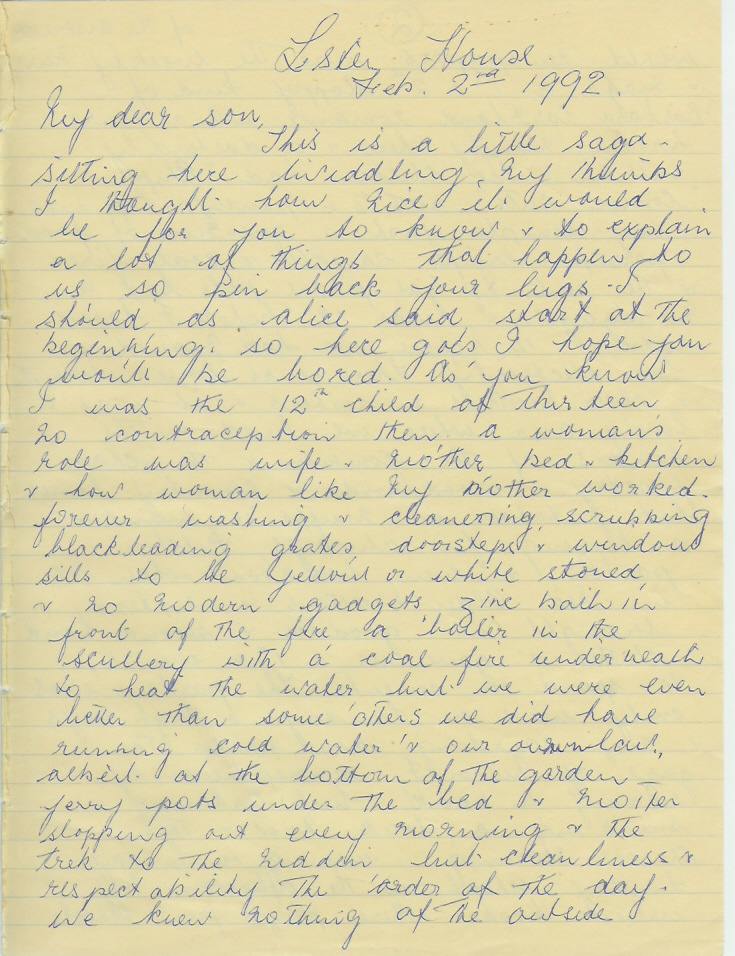 Lster House.
Feb. 2nd 1992.
My dear son,
This is a little saga -
sitting here twiddling my thumbs
I thought how nice it would
be for you to know & to explain
a lot of things that happen to
us so pin back your lugs. I
should as alice said, start at the
beginning. so here goes I hope you
won't be bored. As you know
I was the 12th child of thirteen
no contraception then. a woman's
role was wife & mother bed & kitchen
& how woman like my mother worked.
forever washing & cleanening, scrubbing
blackleading grates, doorsteps & window
sills to be yellow or white stoned,
& no modern gadgets zinc bath in
front of the fire a boiler in the
scullery with a coal fire underneath
to heat the water but we were even
better than some others we did have
running cold water & our own
albeit at the bottom of the garden
jerry pots under the bed & mother
slopping out every morning & the
trek to the midden but cleanliness &
respectability the order of the day.
we knew nothing of the outside